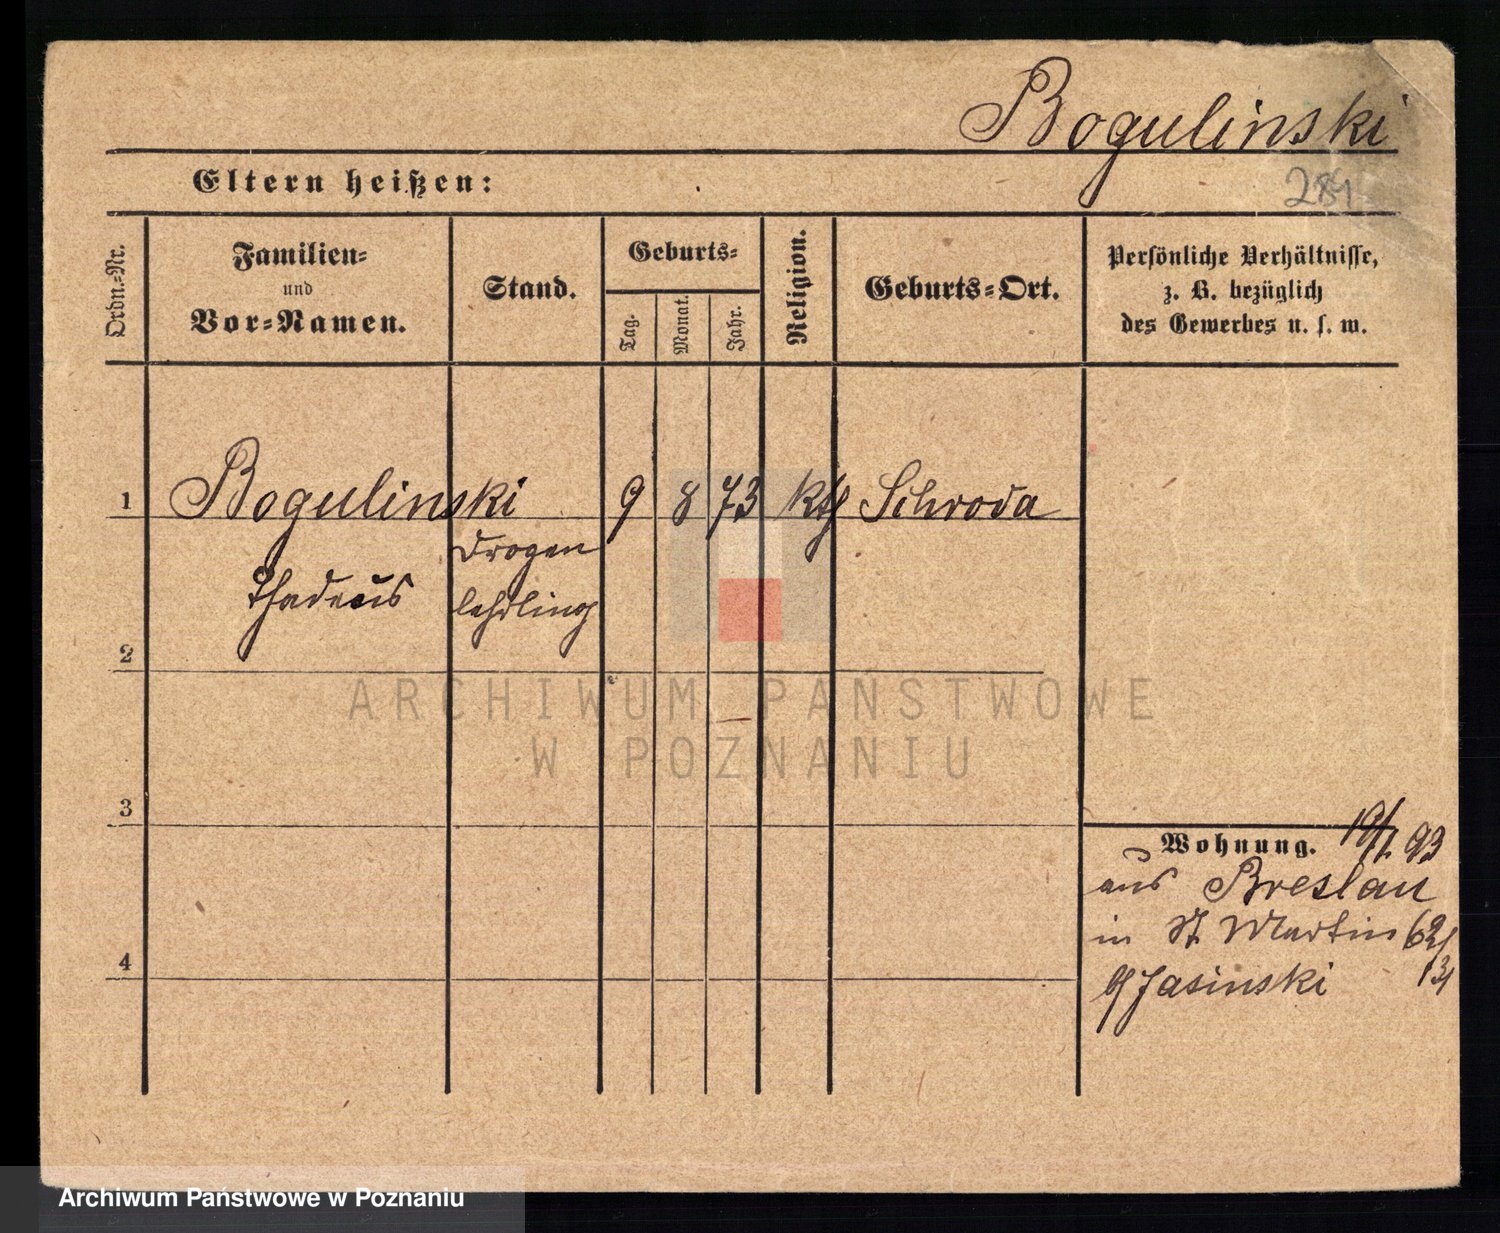 Bogulinski
Eltern heißen:
284
Ordn.-Nr.
Familien-
und
Vor-Namen.
Stand.
Geburts-
Tag.
Monat.
Jahr.
Religion.
Geburts-Ort.
Persönliche Verhältnisse,
z. B. bezüglich
des Gewerbes u. s. w.
1 Bogulinski 9 8 73 kth Schroda
Drogen
Thadeus lehrling
2
ARCHIWUM PAŃSTWOWE
W POZNANIU
3
Wohnung. 93
aus Breslau
in St Martin 62/
b/ Jasinski
4
Archiwum Państwowe w Poznaniu